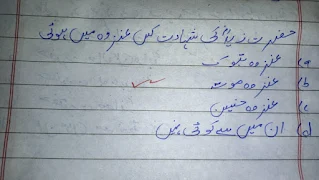 حضرت زیدؓ کی شہادت کس غزوہ میں ہوئی
a) غزوہ تبوک
b) غزوہ موتہ
c) غزوہ حنین
d) ان میں سے کوئی نہیں